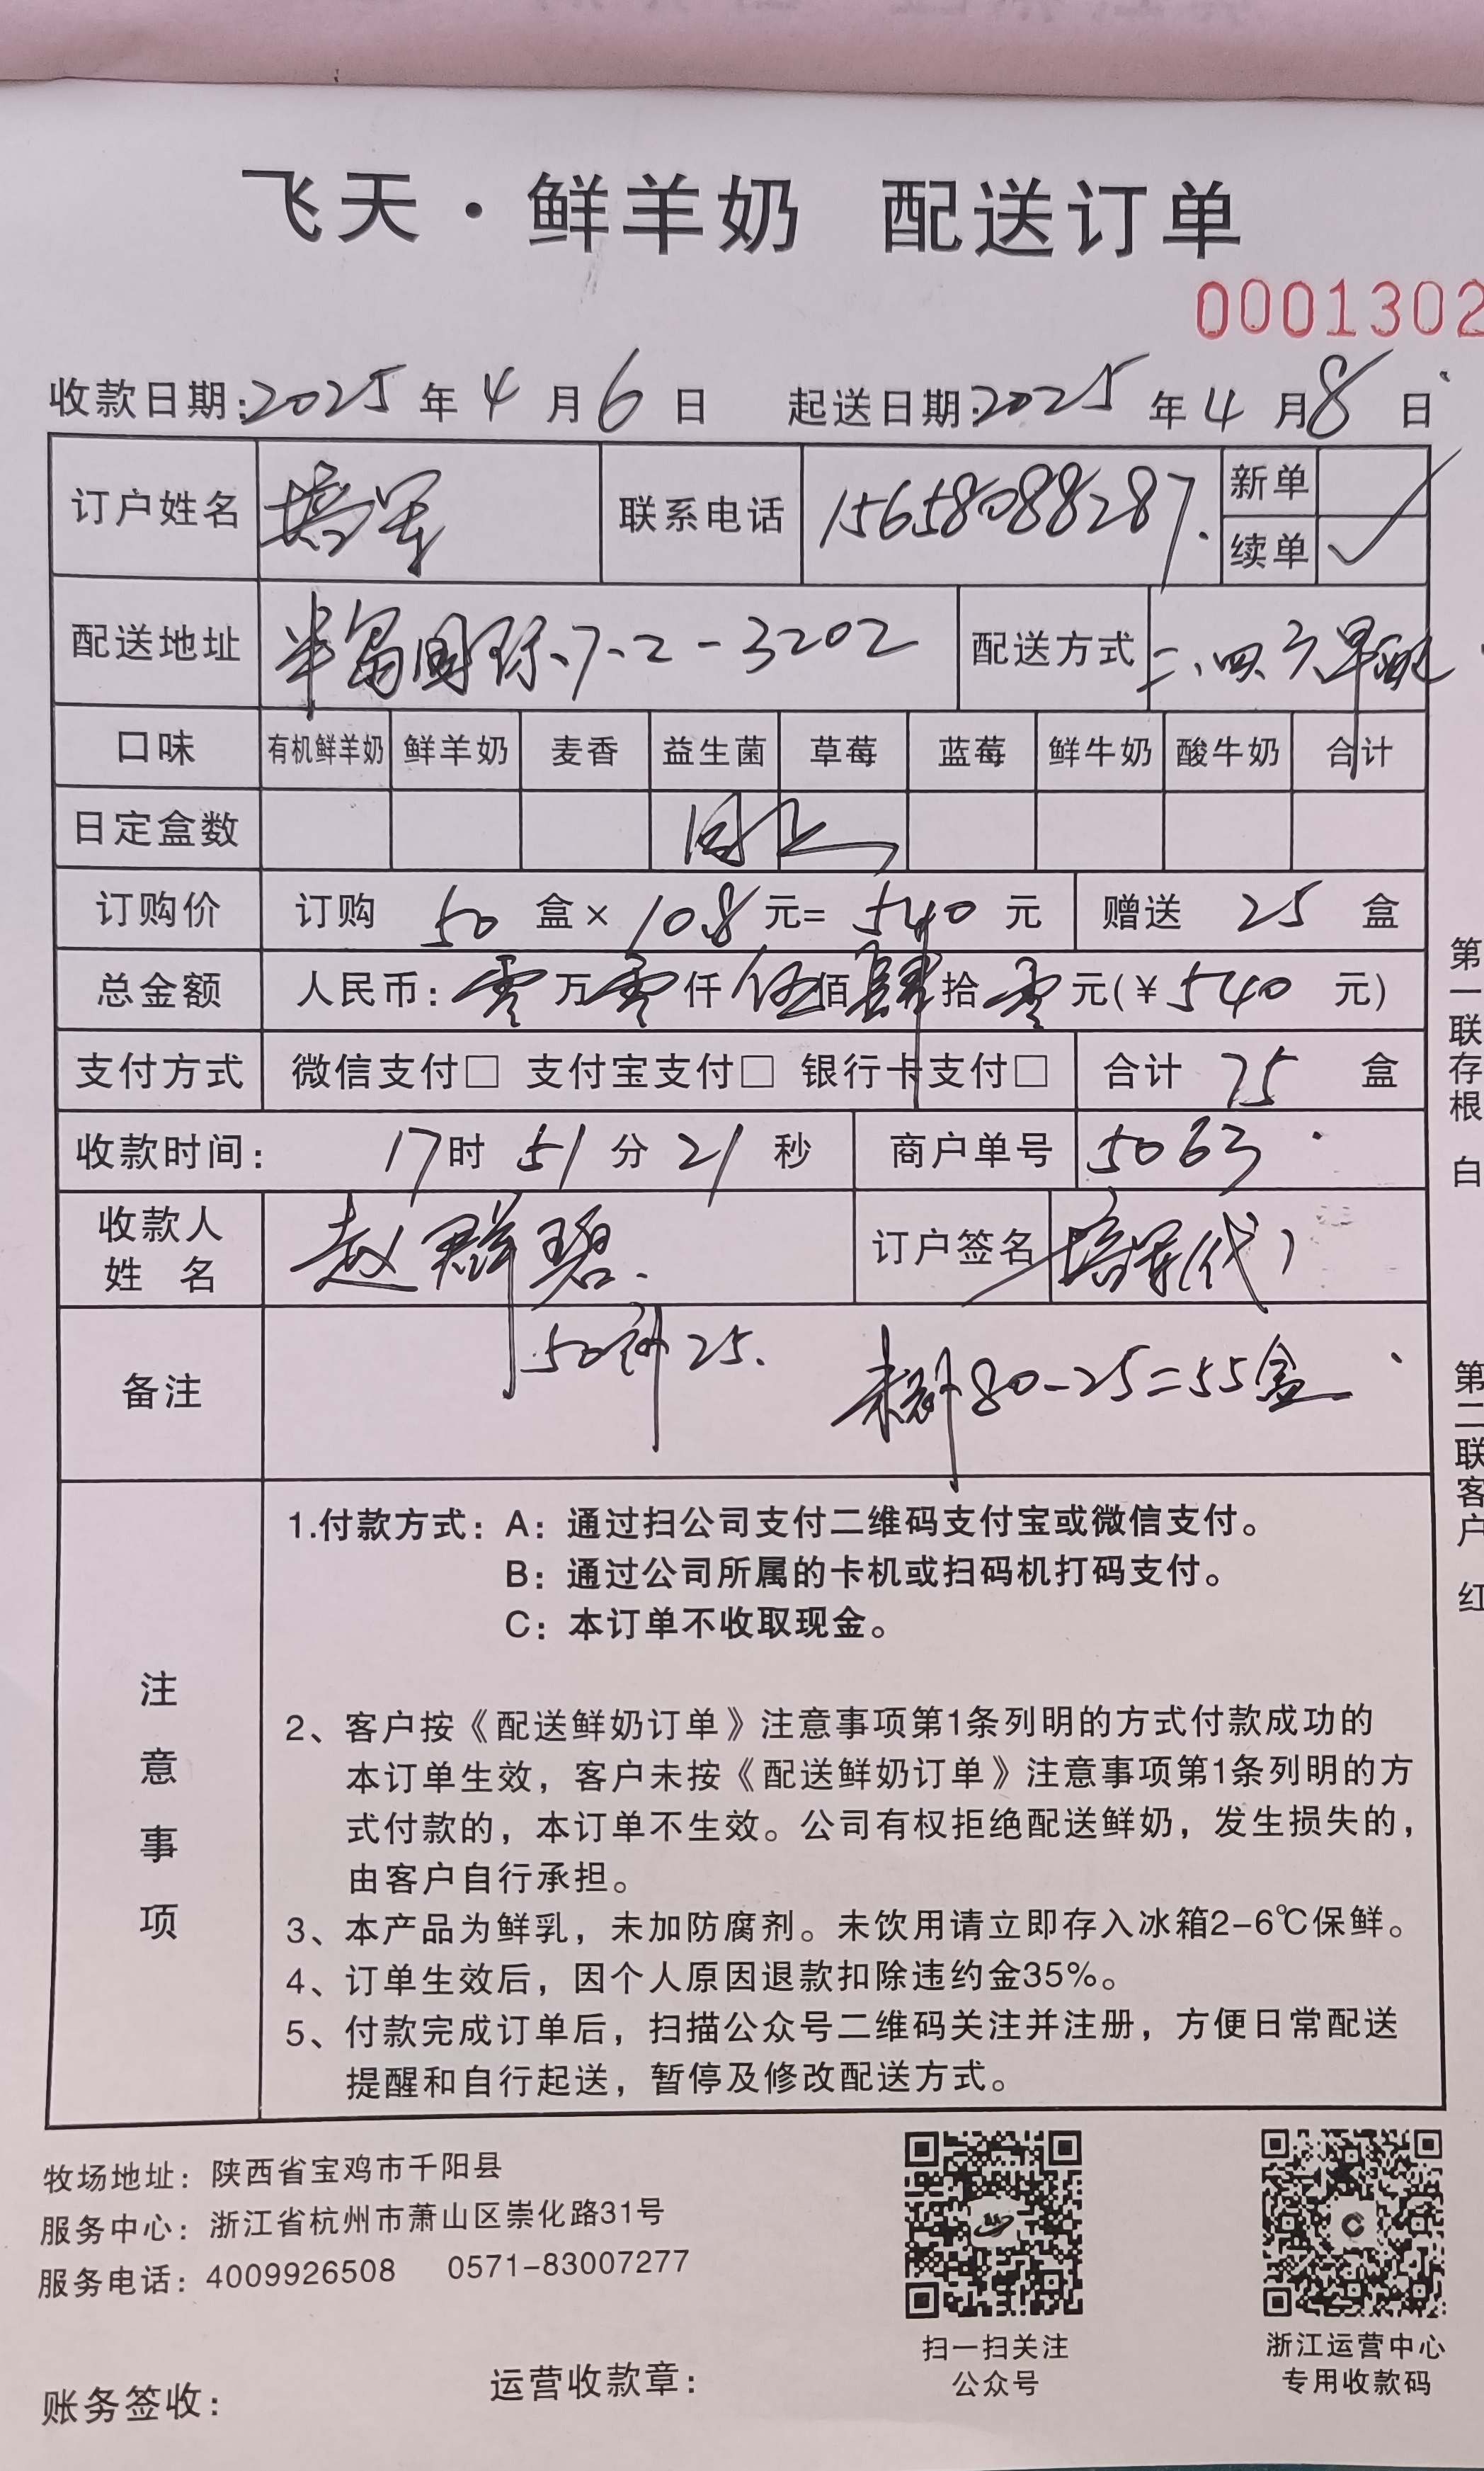 飞天·鲜羊奶 配送订单
0001302
收款日期:2025年4月6日 起送日期:2025年4月8日
订户姓名 培军 联系电话 15658088287. 新单
续单 ✓
配送地址 半岛国际.7.2-3202 配送方式 二、四、六早配
口味 有机鲜羊奶 鲜羊奶 麦香 益生菌 草莓 蓝莓 鲜牛奶 酸牛奶 合计
日定盒数 同上
订购价 订购 50 盒× 10.8 元= 540 元 赠送 25 盒
总金额 人民币: 零万零仟伍佰肆拾零元(¥540 元)
支付方式 微信支付□ 支付宝支付□ 银行卡支付□ 合计 75 盒
收款时间: 17时 51分 21秒 商户单号 5063
收款人姓名 赵群碧. 订户签名 培军(代)
备注 50 25. 80-25=55盒
注意事项
1.付款方式: A: 通过扫公司支付二维码支付宝或微信支付。
B: 通过公司所属的卡机或扫码机打码支付。
C: 本订单不收取现金。
2、客户按《配送鲜奶订单》注意事项第1条列明的方式付款成功的
本订单生效,客户未按《配送鲜奶订单》注意事项第1条列明的方
式付款的,本订单不生效。公司有权拒绝配送鲜奶,发生损失的,
由客户自行承担。
3、本产品为鲜乳,未加防腐剂。未饮用请立即存入冰箱2-6℃保鲜。
4、订单生效后,因个人原因退款扣除违约金35%。
5、付款完成订单后,扫描公众号二维码关注并注册,方便日常配送
提醒和自行起送,暂停及修改配送方式。
第一联存根 白
第二联客户 红
牧场地址: 陕西省宝鸡市千阳县
服务中心: 浙江省杭州市萧山区崇化路31号
服务电话: 4009926508 0571-83007277
扫一扫关注
公众号
浙江运营中心
专用收款码
账务签收: 运营收款章: